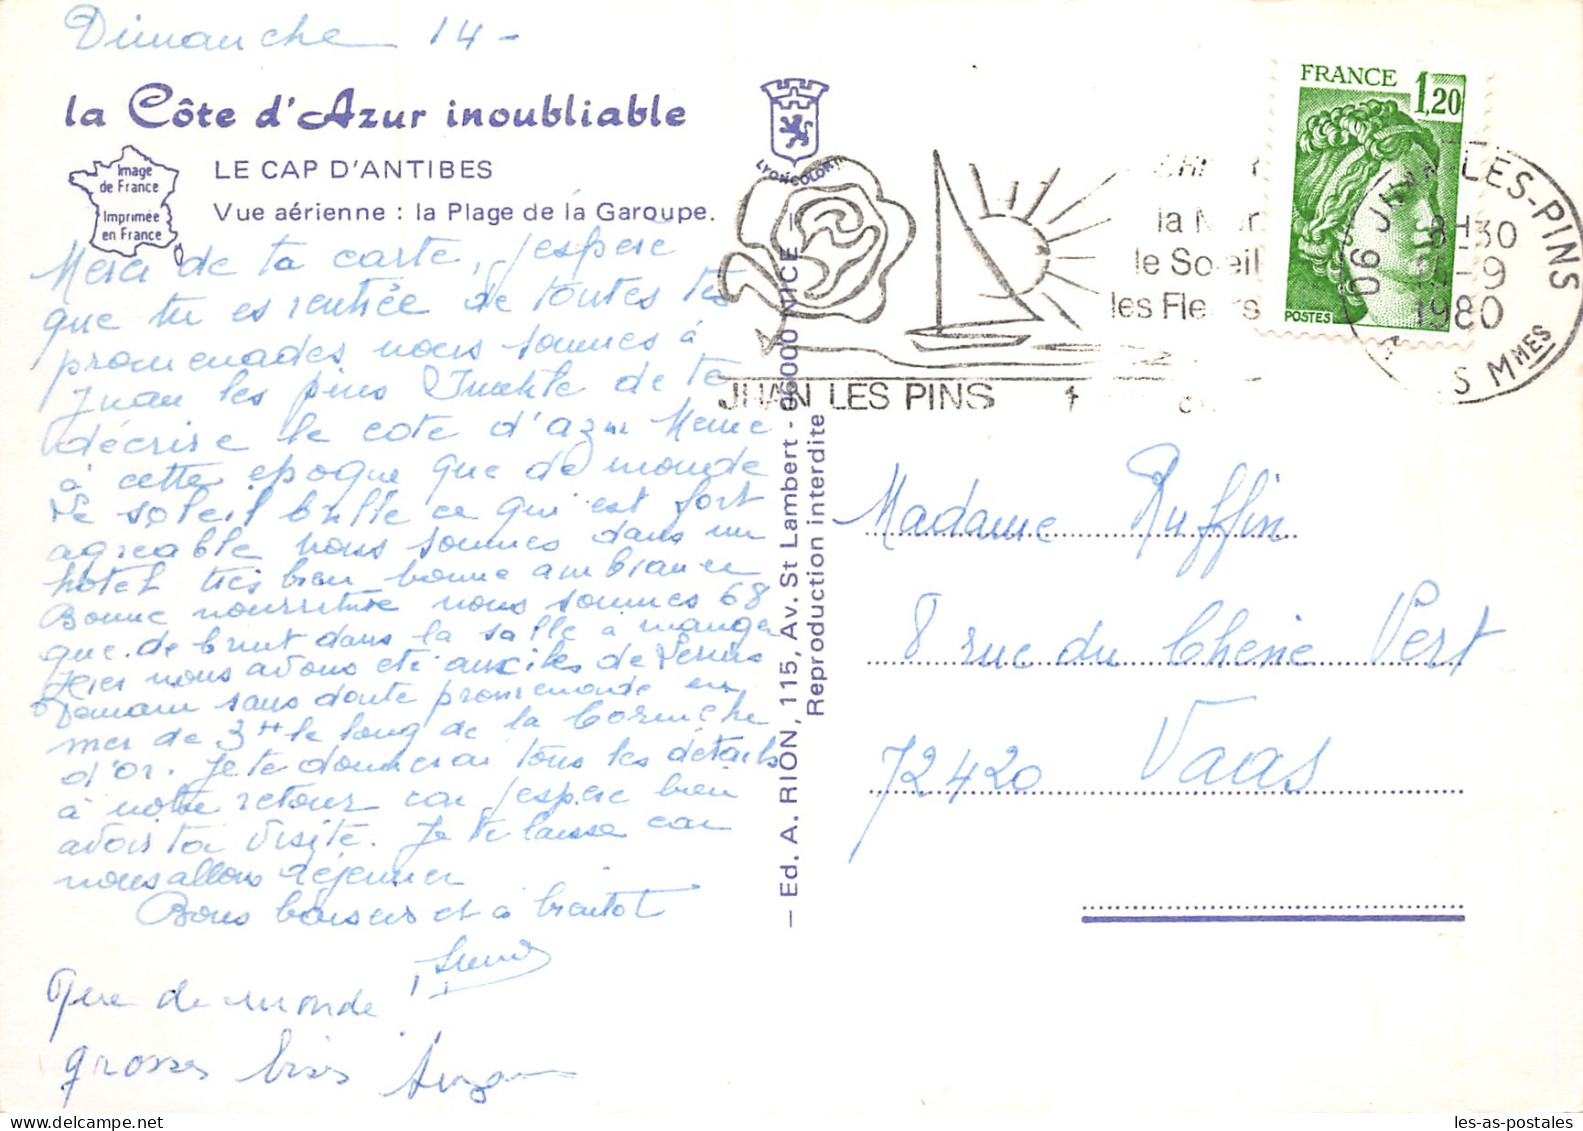 Dimanche 14 -
la Côte d'Azur inoubliable
Image de France
Imprimée en France
LE CAP D'ANTIBES
Vue aérienne : la Plage de la Garoupe.
Merci de ta carte, j'espère
que tu es rentrée de toutes tes
promenades nous sommes à
Juan les pins Inutile de te
décrire la cote d'azur Meme
à cette epoque que de monde
Le soleil brille ce qui est fort
agreable nous sommes dans un
hotel très bien bonne ambiance
Bonne nourriture nous sommes 68
que de bruit dans la salle à manger
Hier nous avons eté aux iles de Lerins
Demain sans doute promenade en
mer de 3H le long de la Corniche
d'or. Je te donnerai tous les détails
à notre retour car j'espere bien
avoir ta visite. Je te laisse car
nous allons déjeuner
Bons baisers et à bientot
Que de monde
grosses bises
LYONCOLOR
— Ed. A. RION, 115, Av. St Lambert - 06000 NICE —
Reproduction interdite
la Mer
le Soleil
les Fleurs
JUAN LES PINS
FRANCE
1,20
POSTES
06 JUAN-LES-PINS
8H30
15-9
1980
S MMES
Madame Ruffin
8 rue du Chêne Vert
72420 Vaas
les-as-postales